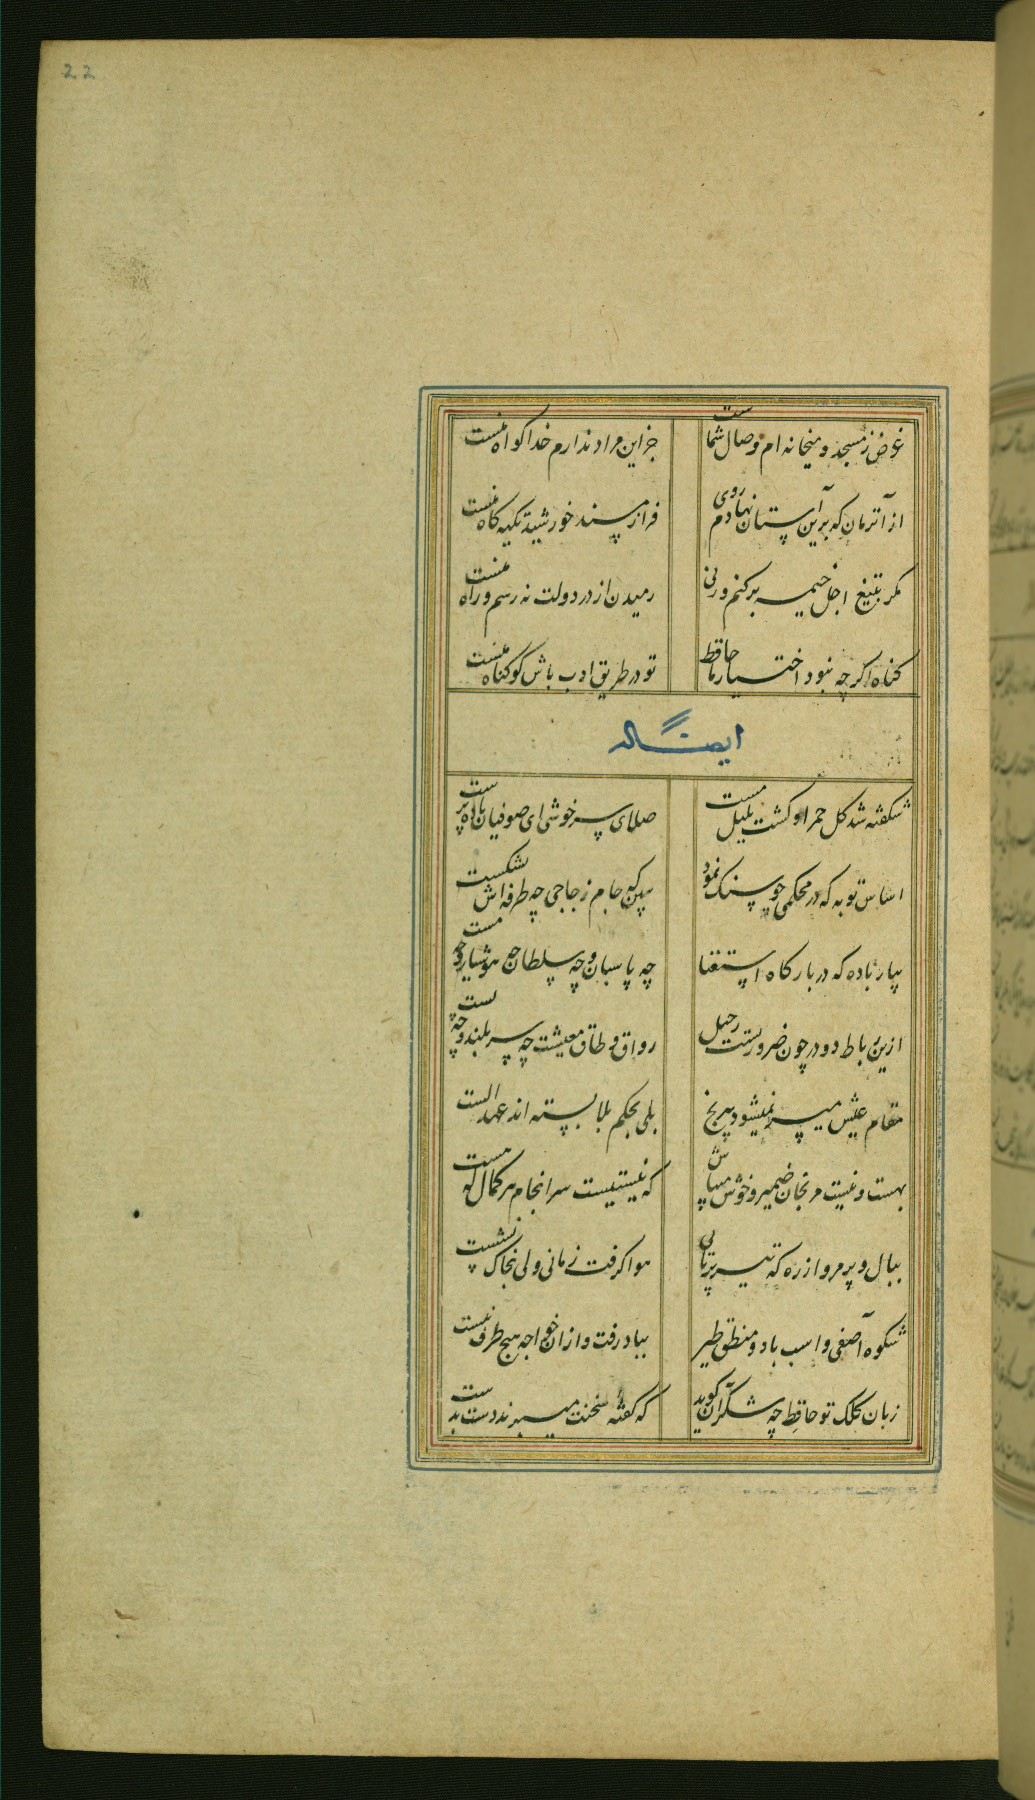 22
غرض ز مسجد و میخانه ام وصال شماست جز این مراد ندارم خدا گواه منست
از آنزمان که برین آستان نهادم روی فراز مسند خورشید تکیه گاه منست
مگر بتیغ اجل خیمه برکنم ورنی رمیدن از در دولت نه رسم و راه منست
گناه اگرچه نبود اختیار ما حافظ تو در طریق ادب باش گو گناه منست
ایضاً له
شکفته شد گل حمرا و گشت بلبل مست صلای سرخوشی ای صوفیان باده پرست
اساس توبه که در محکمی چو سنگ نمود ببین که جام زجاجی چه طرفه اش بشکست
بیار باده که در بارگاه استغنا چه پاسبان و چه سلطان چه هوشیار و چه مست
ازین رباط دو در چون ضرورتست رحیل رواق و طاق معیشت چه سربلند و چه پست
مقام عیش میسر نمیشود بیرنج بلی بحکم بلا بسته اند عهد الست
بهست و نیست مرنجان ضمیر و خوش میباش که نیستیست سرانجام هر کمال که هست
ببال و پر مرو از ره که تیر پرتابی هوا گرفت زمانی ولی بخاک نشست
شکوه آصفی و اسب باد و منطق طیر بباد رفت و ازان خواجه هیچ طرف نبست
زبان کلک تو حافظ چه شکر آن گوید که گفته سخنت میبرند دست بدست